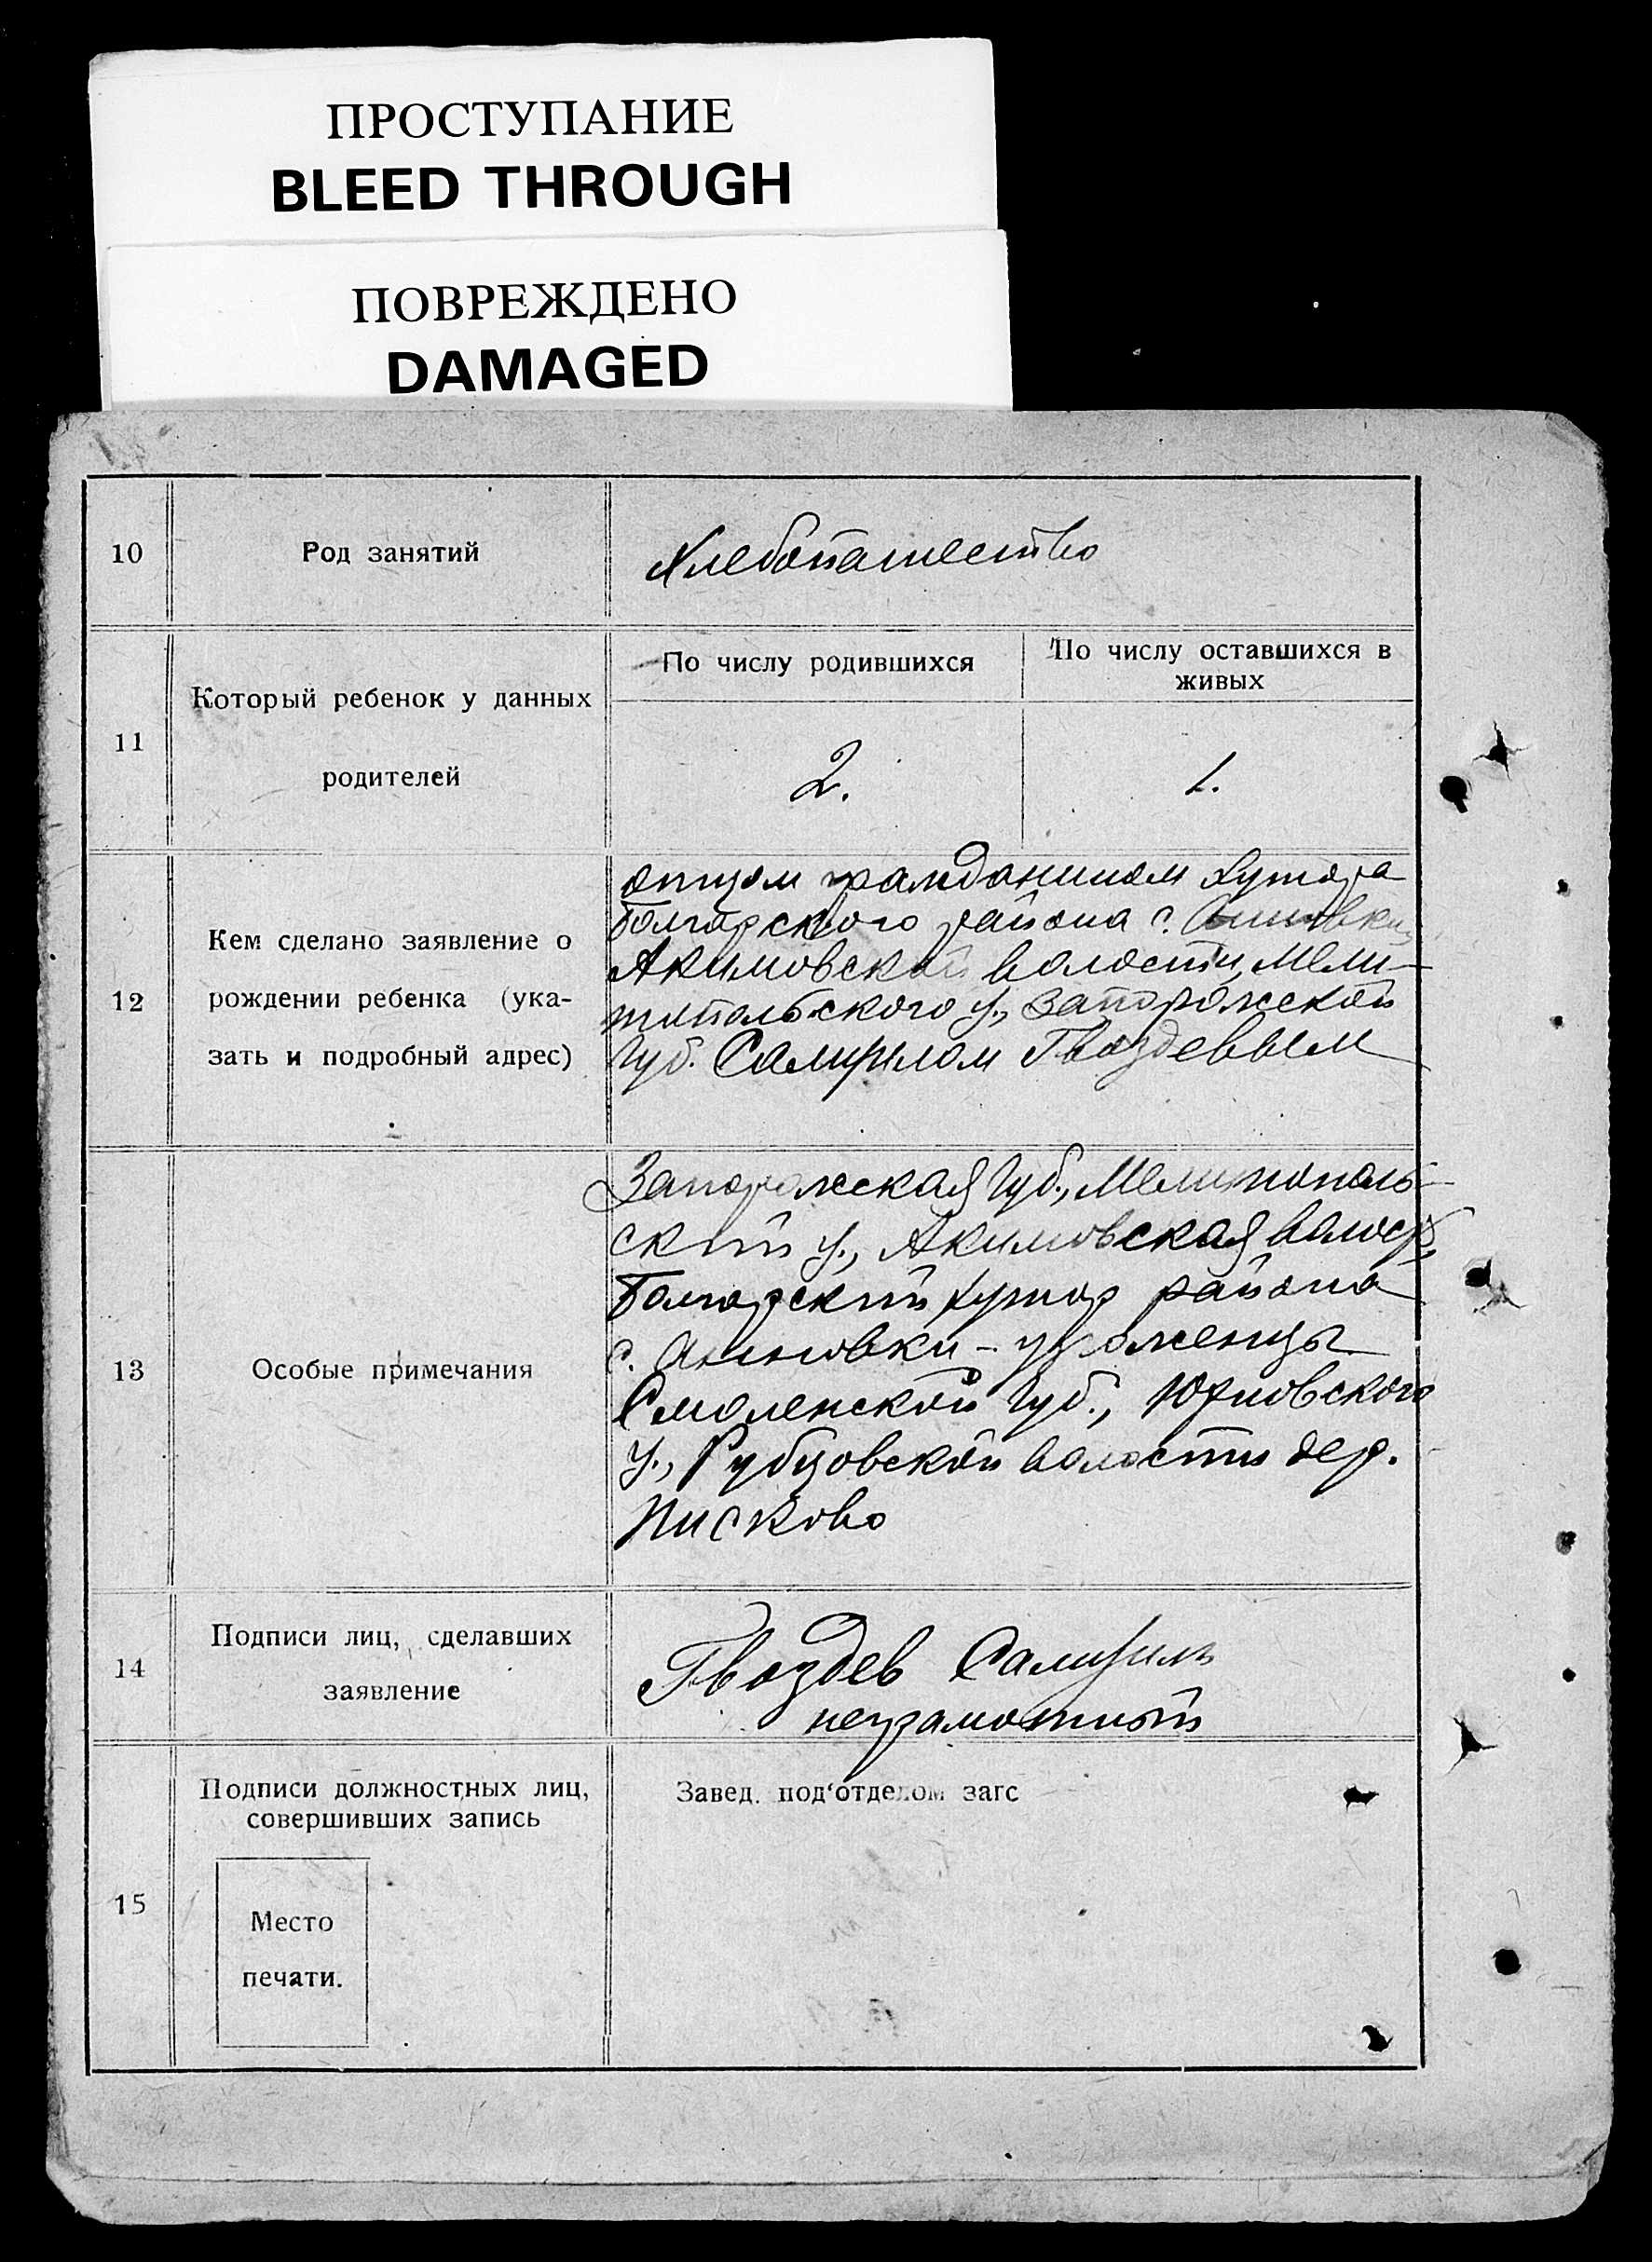 ПРОСТУПАНИЕ
BLEED THROUGH
ПОВРЕЖДЕНО
DAMAGED
10
Род занятий
Хлебопашество
11
Который ребенок у данных
родителей
По числу родившихся
По числу оставшихся в
живых
2.
1.
12
Кем сделано заявление о
рождении ребенка (ука-
зать и подробный адрес)
отцом гражданином хутора
Болгарского района с.
Акимовской волости, Мели-
топольского у., Запорожской
губ. Гвоздевым
13
Особые примечания
Запорожская губ., Мелитополь-
ский у., Акимовская волост,
Болгарский хутор района
с. Анновки - уроженцы
Смоленской губ., Юхновского
у., Рубцовской волости дер.
Писково
14
Подписи лиц, сделавших
заявление
Гвоздев
неграмотный
15
Подписи должностных лиц,
совершивших запись
Место
печати.
Завед. под‘отделом загс